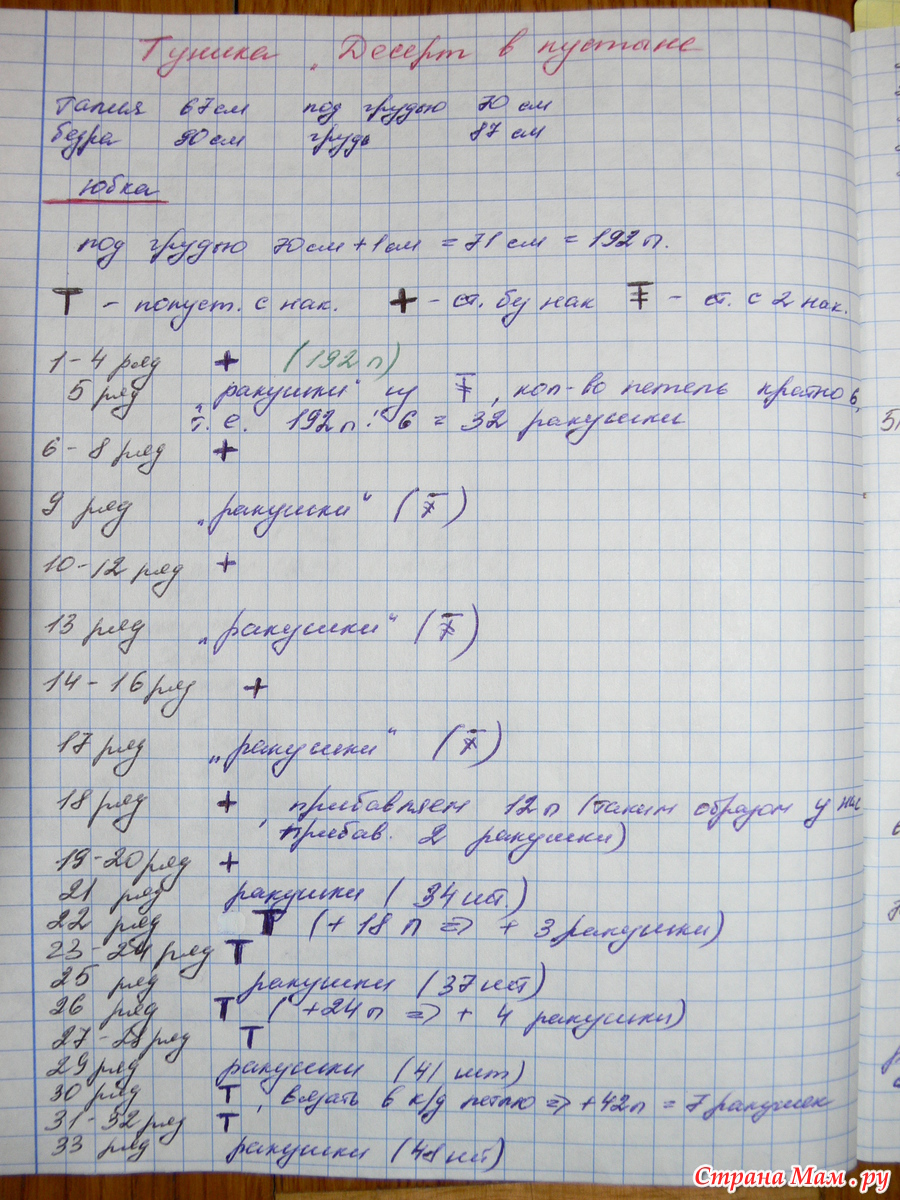 Туника „Десерт в пустыне
талия 67см под грудью 70 см
бедра 90см грудь 87 см
юбка
под грудью 70см+1см = 71см = 192 п.
Т - полуст. с нак. + - ст. без нак ‡ - ст. с 2 нак.
1-4 ряд + (192 п)
5 ряд „ракушки" из ‡, кол-во петель кратно 6,
т.е. 192п : 6 = 32 ракушки
6-8 ряд +
9 ряд „ракушки" (‡)
10-12 ряд +
13 ряд „ракушки" (‡)
14-16 ряд +
17 ряд „ракушки" (‡)
18 ряд +, прибавляем 12п (таким образом у
прибав. 2 ракушки)
19-20 ряд +
21 ряд ракушки (34 шт.)
22 ряд Т (+18 п => + 3 ракушки)
23-24 ряд Т
25 ряд ракушки (37 шт)
26 ряд Т (+24п => + 4 ракушки)
27-28 ряд Т
29 ряд ракушки (41 шт)
30 ряд Т, вязать в к/д петлю => +42п = 7 ракушек
31-32 ряд Т
33 ряд ракушки (48 шт)
Страна Мам.ру